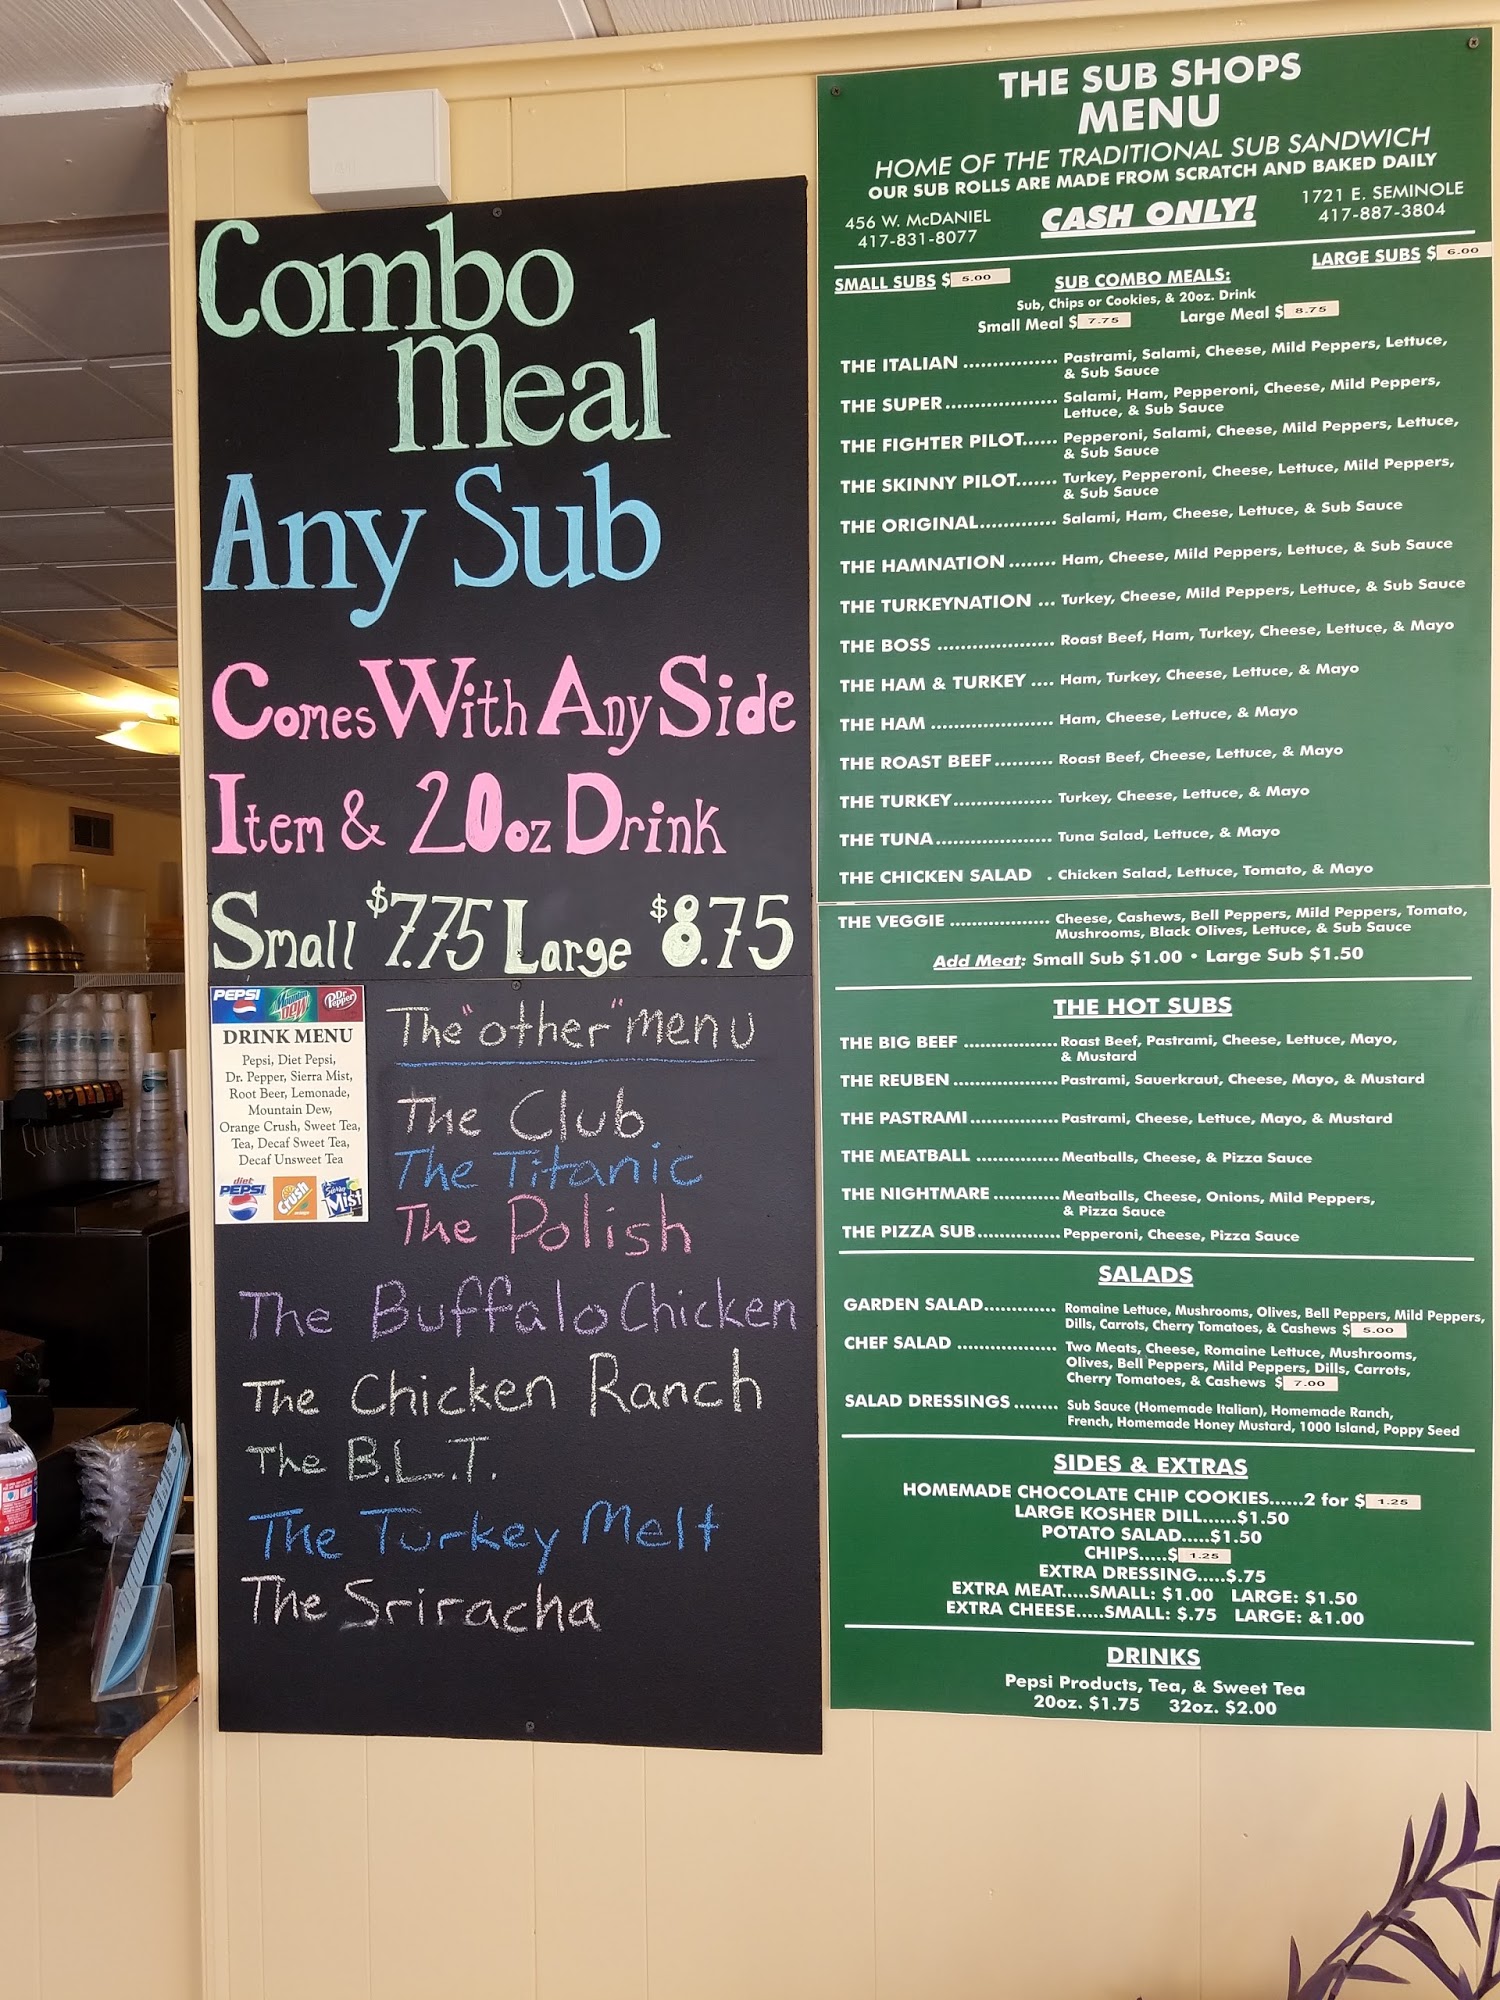 Combo
Meal
Any Sub
Comes With Any Side
Item & 20oz Drink
Small $7.75 Large $8.75
PEPSI Mountain Dew Dr Pepper
DRINK MENU
Pepsi, Diet Pepsi,
Dr. Pepper, Sierra Mist,
Root Beer, Lemonade,
Mountain Dew,
Orange Crush, Sweet Tea,
Tea, Decaf Sweet Tea,
Decaf Unsweet Tea
diet PEPSI Crush Sierra Mist
The "other" menu
The Club
The Titanic
The Polish
The Buffalo Chicken
The Chicken Ranch
The B.L.T.
The Turkey Melt
The Sriracha
THE SUB SHOPS
MENU
HOME OF THE TRADITIONAL SUB SANDWICH
OUR SUB ROLLS ARE MADE FROM SCRATCH AND BAKED DAILY
456 W. McDANIEL
417-831-8077
CASH ONLY!
1721 E. SEMINOLE
417-887-3804
SMALL SUBS $ 5.00
SUB COMBO MEALS:
LARGE SUBS $ 6.00
Sub, Chips or Cookies, & 20oz. Drink
Small Meal $ 7.75 Large Meal $ 8.75
THE ITALIAN ................ Pastrami, Salami, Cheese, Mild Peppers, Lettuce,
& Sub Sauce
THE SUPER................... Salami, Ham, Pepperoni, Cheese, Mild Peppers,
Lettuce, & Sub Sauce
THE FIGHTER PILOT...... Pepperoni, Salami, Cheese, Mild Peppers, Lettuce,
& Sub Sauce
THE SKINNY PILOT....... Turkey, Pepperoni, Cheese, Lettuce, Mild Peppers,
& Sub Sauce
THE ORIGINAL............. Salami, Ham, Cheese, Lettuce, & Sub Sauce
THE HAMNATION ........ Ham, Cheese, Mild Peppers, Lettuce, & Sub Sauce
THE TURKEYNATION ... Turkey, Cheese, Mild Peppers, Lettuce, & Sub Sauce
THE BOSS .................... Roast Beef, Ham, Turkey, Cheese, Lettuce, & Mayo
THE HAM & TURKEY .... Ham, Turkey, Cheese, Lettuce, & Mayo
THE HAM ..................... Ham, Cheese, Lettuce, & Mayo
THE ROAST BEEF.......... Roast Beef, Cheese, Lettuce, & Mayo
THE TURKEY................. Turkey, Cheese, Lettuce, & Mayo
THE TUNA.................... Tuna Salad, Lettuce, & Mayo
THE CHICKEN SALAD . Chicken Salad, Lettuce, Tomato, & Mayo
THE VEGGIE ................. Cheese, Cashews, Bell Peppers, Mild Peppers, Tomato,
Mushrooms, Black Olives, Lettuce, & Sub Sauce
Add Meat: Small Sub $1.00 • Large Sub $1.50
THE HOT SUBS
THE BIG BEEF ................ Roast Beef, Pastrami, Cheese, Lettuce, Mayo,
& Mustard
THE REUBEN .................. Pastrami, Sauerkraut, Cheese, Mayo, & Mustard
THE PASTRAMI............... Pastrami, Cheese, Lettuce, Mayo, & Mustard
THE MEATBALL .............. Meatballs, Cheese, & Pizza Sauce
THE NIGHTMARE ........... Meatballs, Cheese, Onions, Mild Peppers,
& Pizza Sauce
THE PIZZA SUB.............. Pepperoni, Cheese, Pizza Sauce
SALADS
GARDEN SALAD............. Romaine Lettuce, Mushrooms, Olives, Bell Peppers, Mild Peppers,
Dills, Carrots, Cherry Tomatoes, & Cashews $ 5.00
CHEF SALAD .................. Two Meats, Cheese, Romaine Lettuce, Mushrooms,
Olives, Bell Peppers, Mild Peppers, Dills, Carrots,
Cherry Tomatoes, & Cashews $ 7.00
SALAD DRESSINGS ........ Sub Sauce (Homemade Italian), Homemade Ranch,
French, Homemade Honey Mustard, 1000 Island, Poppy Seed
SIDES & EXTRAS
HOMEMADE CHOCOLATE CHIP COOKIES......2 for $ 1.25
LARGE KOSHER DILL......$1.50
POTATO SALAD.....$1.50
CHIPS.....$ 1.25
EXTRA DRESSING.....$.75
EXTRA MEAT.....SMALL: $1.00 LARGE: $1.50
EXTRA CHEESE.....SMALL: $.75 LARGE: &1.00
DRINKS
Pepsi Products, Tea, & Sweet Tea
20oz. $1.75 32oz. $2.00